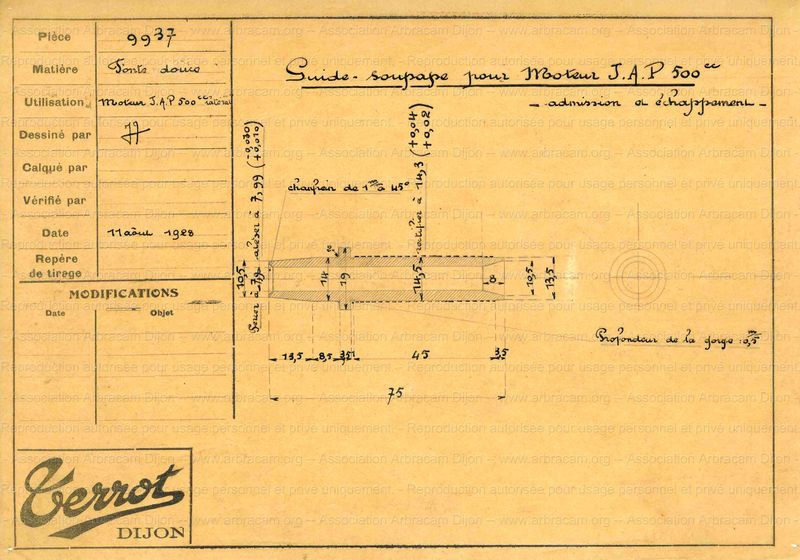 Pièce 9937
Matière Fonte douce
Utilisation Moteur J.A.P 500cc latéral
Dessiné par
Calqué par
Vérifié par
Date 11 août 1928
Repère
de tirage
MODIFICATIONS
Date Objet
Guide-soupape pour Moteur J.A.P 500cc
- admission et échappement -
chanfrein de 1 m/m à 45°
Forer à 7,9 aléser à 7,99 (-0,030)
(+0,010)
rectifier à 14,3 (+0,04)
(+0,02)
10,5
14
19
14,5
8
10,5
13,5
13,5 8,5 3,5 45 3,5
75
Profondeur de la gorge : 0,5 m/m
Terrot
DIJON
www.arbracam.org – Association Arbracam Dijon
Reproduction autorisée pour usage personnel et privé uniquement.